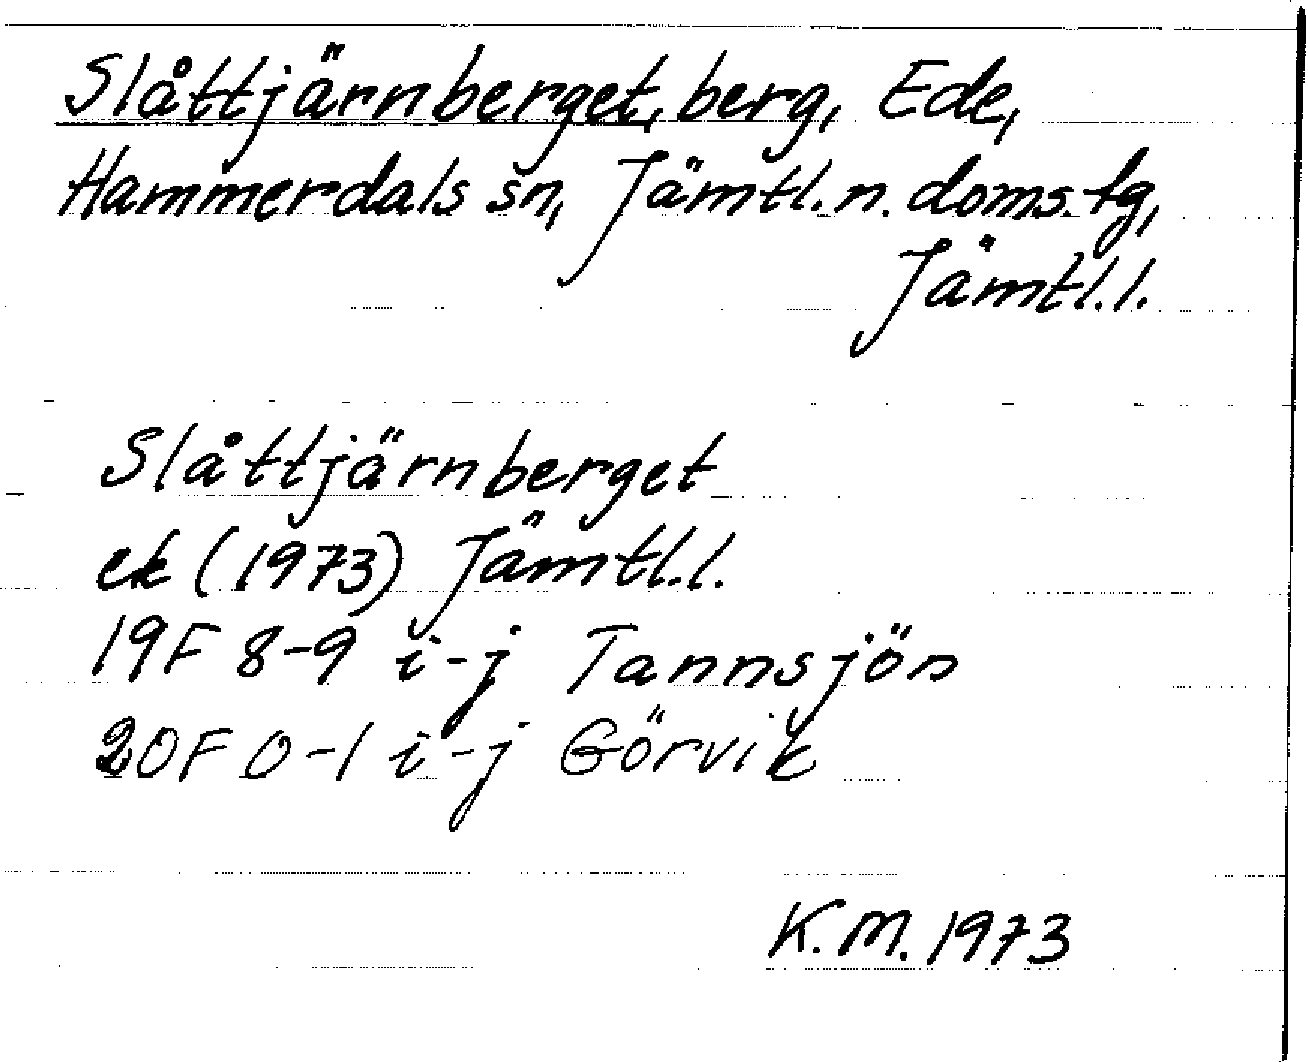 Slåttjärnberget, berg, Ede,
Hammerdals sn, Jämtl. n. doms. tg,
Jämtl. l.
Slåttjärnberget
ek (1973) Jämtl. l.
19F 8-9 i-j Tannsjön
20F 0-1 i-j Görvik
K. M. 1973